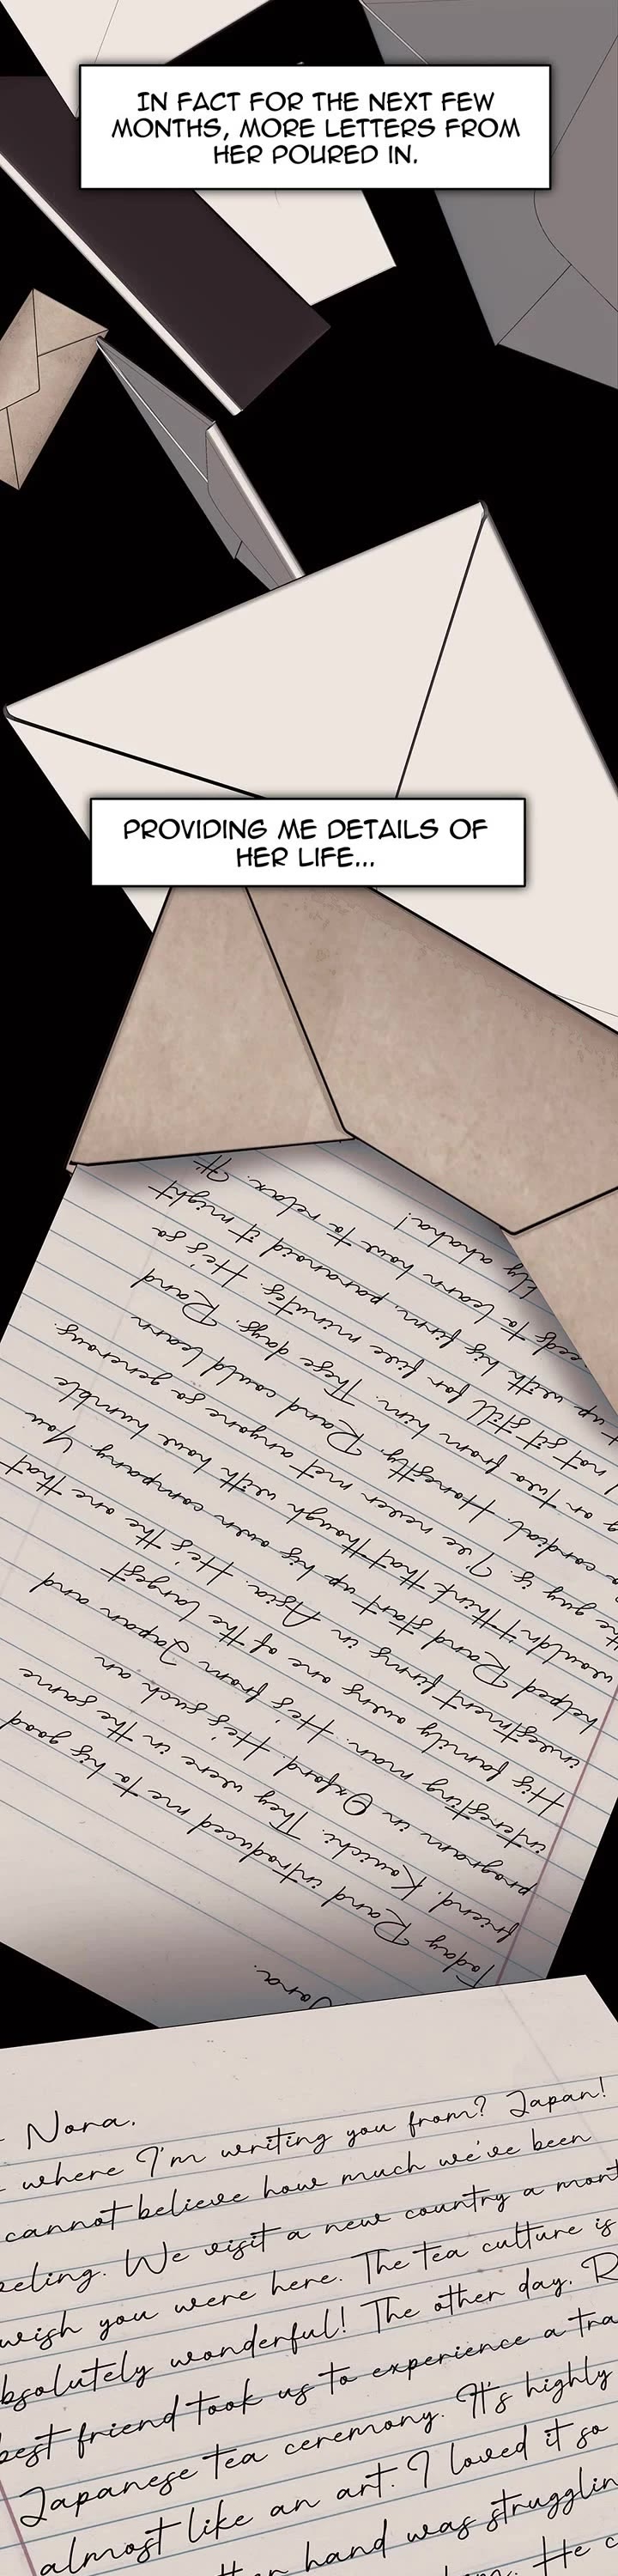 IN FACT FOR THE NEXT FEW
MONTHS, MORE LETTERS FROM
HER POURED IN.
PROVIDING ME DETAILS OF
HER LIFE...
Today Rand introduced me to his good
friend, Kouichi. They were in the same
program in Oxford. He's such an
interesting man. He's from Japan and
His family owns one of the largest
investment firms in Asia. He's the one that
helped Rand start up his own company. You
wouldn't think that though with how humble
the guy is. I've never met anyone so generous
cordial. Honestly, Rand could learn
or two from him. These days, Rand
not sit still for five minutes. He's so
up with his firm, paranoid it might
to learn how to relax. It
ahaha!
Nora,
where I'm writing you from? Japan!
cannot believe how much we've been
We visit a new country a
wish you were here. The tea culture is
wonderful! The other day,
best friend took us to experience a
Japanese tea ceremony. It's highly
almost like an art. I loved it so
hand was
He